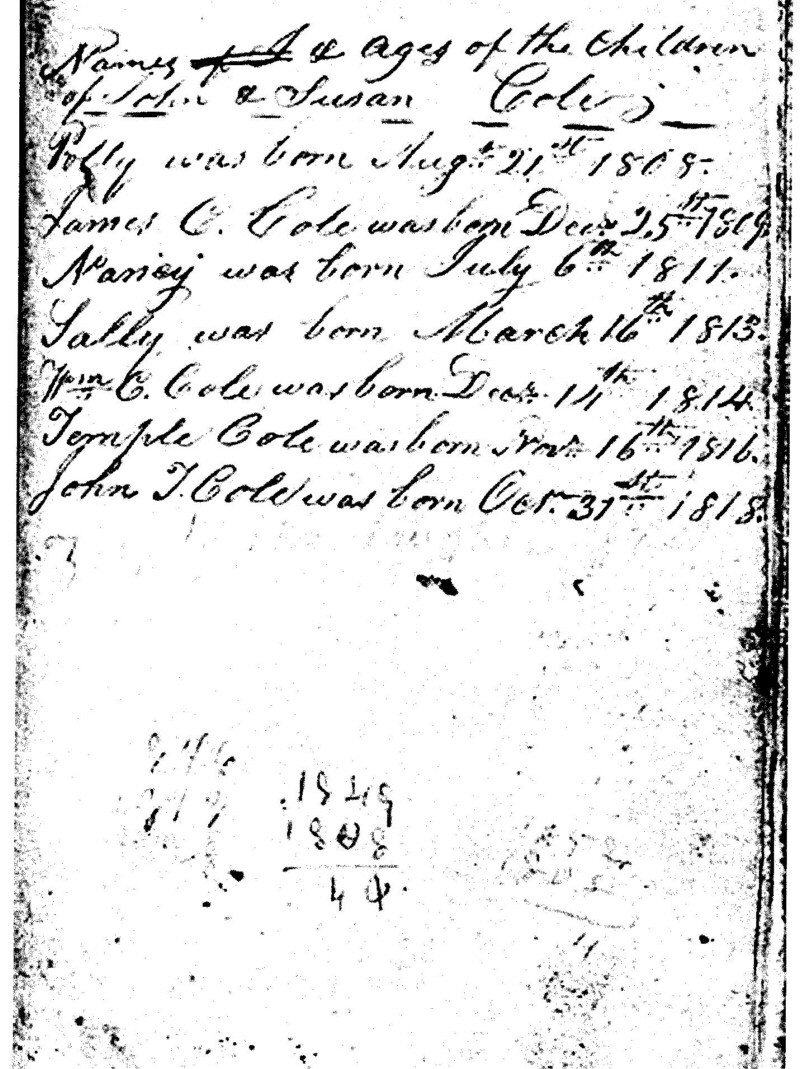 Names of J & Ages of the Children
of John & Susan Cole;
Polly was born Augt. 21st 1808.
James C. Cole was born Decr. 25st 1809.
Nancy was born July 6th 1811.
Sally was born March 16th 1813.
Wm C. Cole was born Decr. 14th 1814.
Temple Cole was born Novr. 16th 1816.
John T. Cole was born Oct. 31st 1818.
1848
1808
40